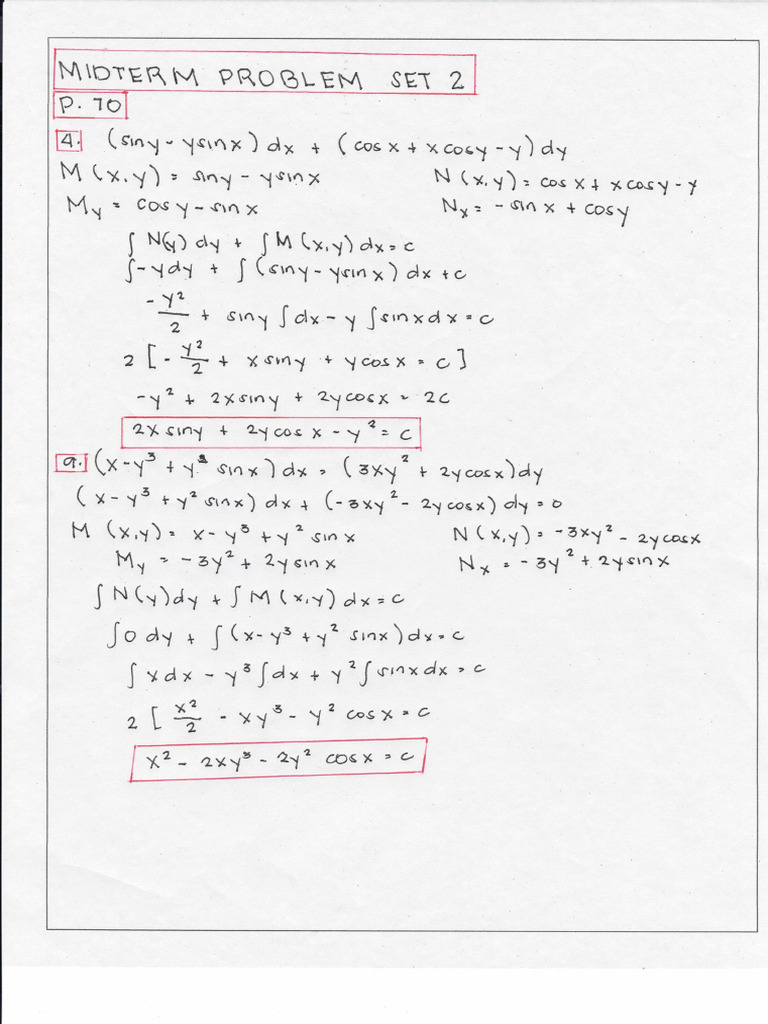 MIDTERM PROBLEM SET 2
P. 70
4. (siny - ysinx) dx + (cosx + xcosy - y) dy
M (x,y) = siny - ysinx N (x,y) = cosx + xcosy - y
My = cosy - sinx Nx = -sinx + cosy
∫ N(y) dy + ∫ M (x,y) dx = c
∫ -ydy + ∫ (siny - ysinx) dx + c
-y²/2 + siny ∫ dx - y ∫ sinxdx = c
2 [ - y²/2 + xsiny + ycosx = c ]
-y² + 2xsiny + 2ycosx = 2c
2xsiny + 2ycosx - y² = c
9. (x - y³ + y² sinx) dx = (3xy² + 2ycosx) dy
(x - y³ + y² sinx) dx + (-3xy² - 2ycosx) dy = 0
M (x,y) = x - y³ + y² sinx N (x,y) = -3xy² - 2ycosx
My = -3y² + 2ysinx Nx = -3y² + 2ysinx
∫ N(y) dy + ∫ M (x,y) dx = c
∫ 0 dy + ∫ (x - y³ + y² sinx) dx = c
∫ xdx - y³ ∫ dx + y² ∫ sinxdx = c
2 [ x²/2 - xy³ - y² cosx = c
x² - 2xy³ - 2y² cosx = c